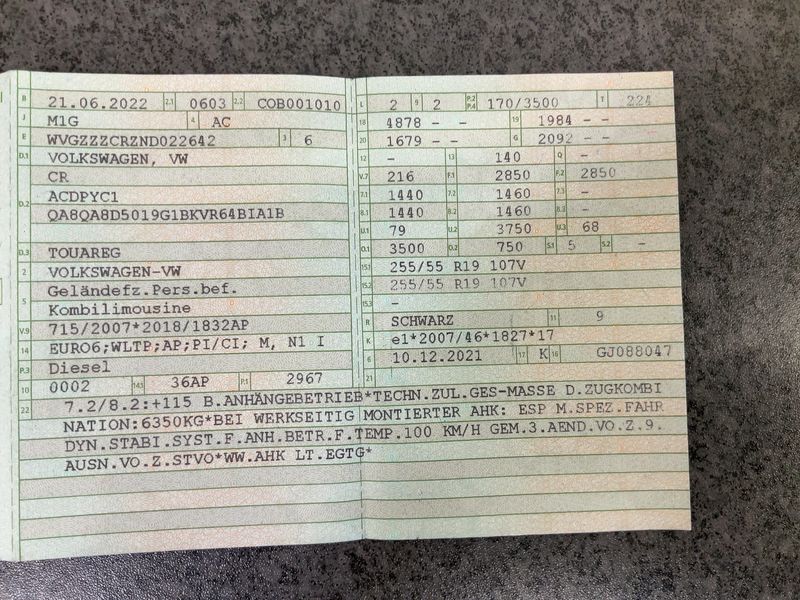 B 21.06.2022 2.1 0603 2.2 COB001010
J M1G 4 AC
E WVGZZZCRZND022642 3 6
D.1 VOLKSWAGEN, VW
CR
D.2 ACDPYC1
QA8QA8D5019G1BKVR64BIA1B
D.3 TOUAREG
2 VOLKSWAGEN-VW
5 Geländefz.Pers.bef.
Kombilimousine
V.9 715/2007*2018/1832AP
14 EURO6;WLTP;AP;PI/CI; M, N1 I
P.3 Diesel
10 0002 14.1 36AP P.1 2967
L 2 9 2 P.2 P.4 170/3500 T 224
18 4878 - - 19 1984 - -
20 1679 - - G 2092 - -
12 - 13 140 Q -
V.7 216 F.1 2850 F.2 2850
7.1 1440 7.2 1460 7.3 -
8.1 1440 8.2 1460 8.3 -
U.1 79 U.2 3750 U.3 68
O.1 3500 O.2 750 S.1 5 S.2 -
15.1 255/55 R19 107V
15.2 255/55 R19 107V
15.3 -
R SCHWARZ 11 9
K e1*2007/46*1827*17
6 10.12.2021 17 K 16 GJ088047
21
22 7.2/8.2:+115 B.ANHÄNGEBETRIEB*TECHN.ZUL.GES-MASSE D.ZUGKOMBI
NATION:6350KG*BEI WERKSEITIG MONTIERTER AHK: ESP M.SPEZ.FAHR
DYN.STABI.SYST.F.ANH.BETR.F.TEMP.100 KM/H GEM.3.AEND.VO.Z.9.
AUSN.VO.Z.STVO*WW.AHK LT.EGTG*